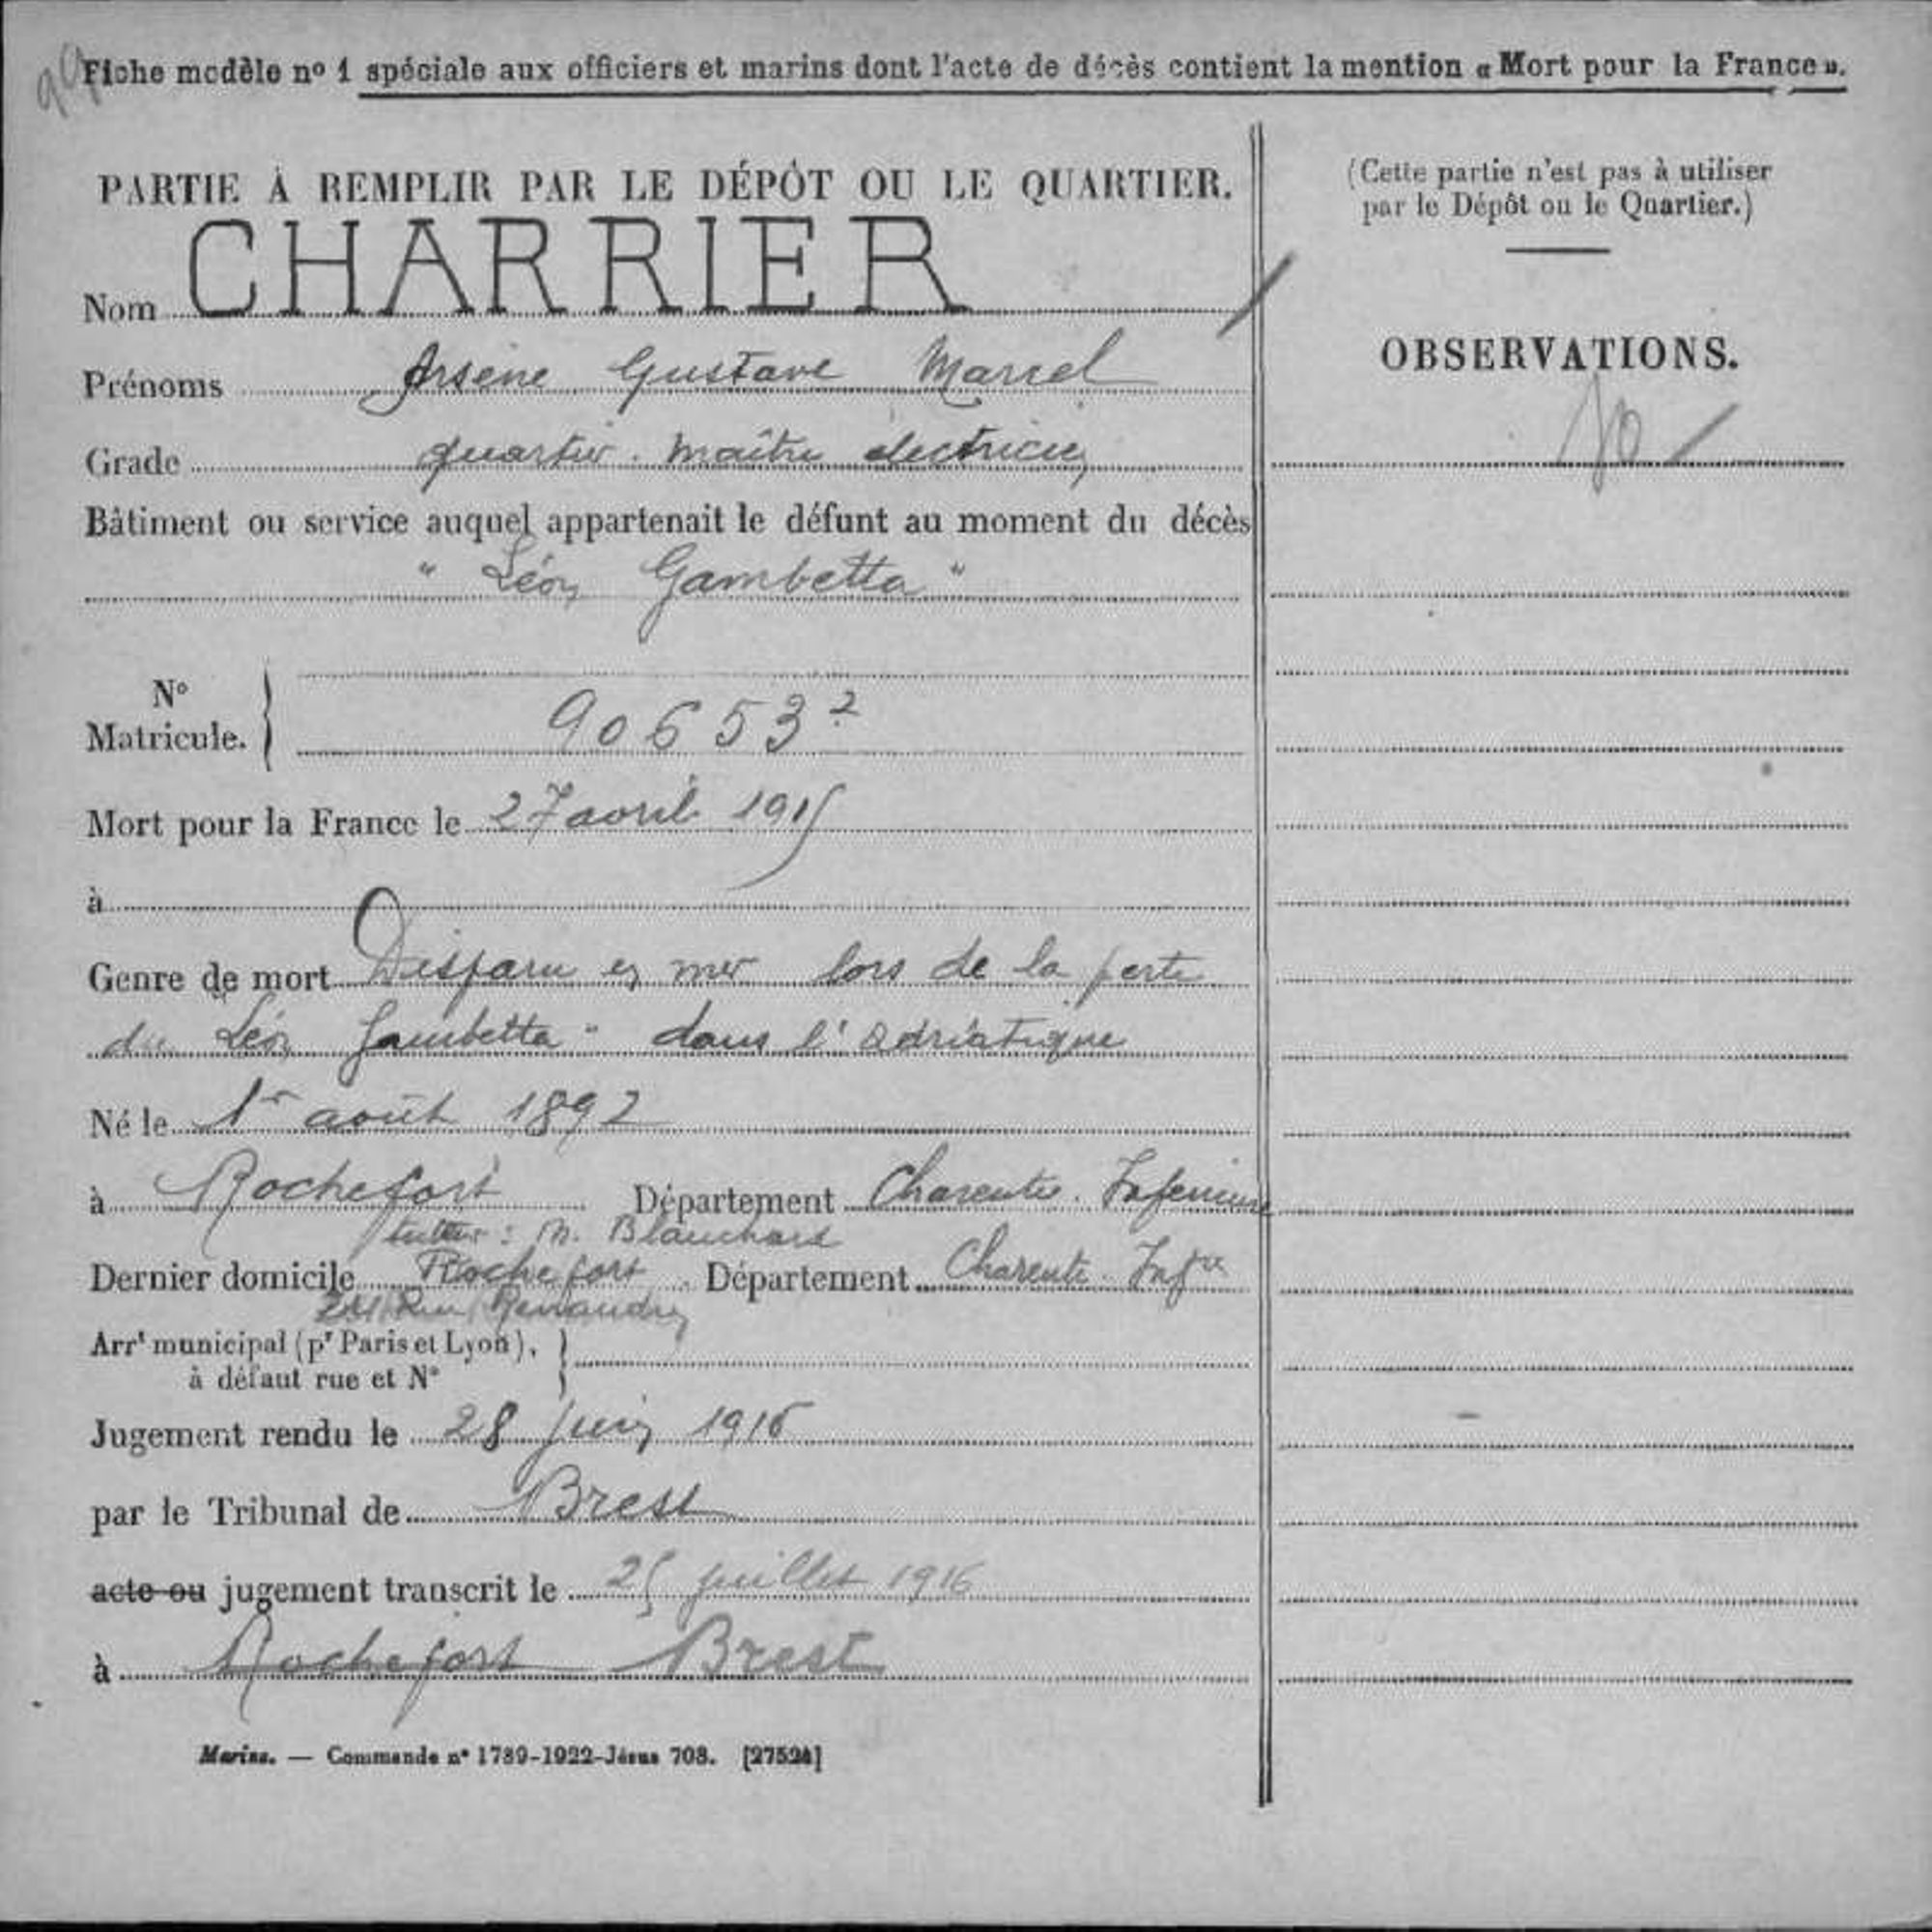 Fiche modèle nº 1 spéciale aux officiers et marins dont l'acte de décès contient la mention « Mort pour la France ».
PARTIE À REMPLIR PAR LE DÉPÔT OU LE QUARTIER.
Nom CHARRIER
Prénoms Arsène Gustave Marcel
Grade quartier-maître électricien
Bâtiment ou service auquel appartenait le défunt au moment du décès
"Léon Gambetta"
Nº
Matricule. } 90653²
Mort pour la France le 27 avril 1915
à
Genre de mort Disparu en mer lors de la perte
du Léon Gambetta" dans l'Adriatique
Né le 1er août 1892
à Rochefort Département Charente-Inférieure
tuteur : M. Blanchard
Dernier domicile Rochefort Département Charente Infre
Rue
Arrt municipal (pr Paris et Lyon), }
à défaut rue et Nº
Jugement rendu le 28 juin 1916
par le Tribunal de Brest
acte ou jugement transcrit le 25 juillet 1916
à Rochefort Brest
Marine. — Commande nº 1789-1922-Jésus 708. [27524]
(Cette partie n'est pas à utiliser
par le Dépôt ou le Quartier.)
OBSERVATIONS.